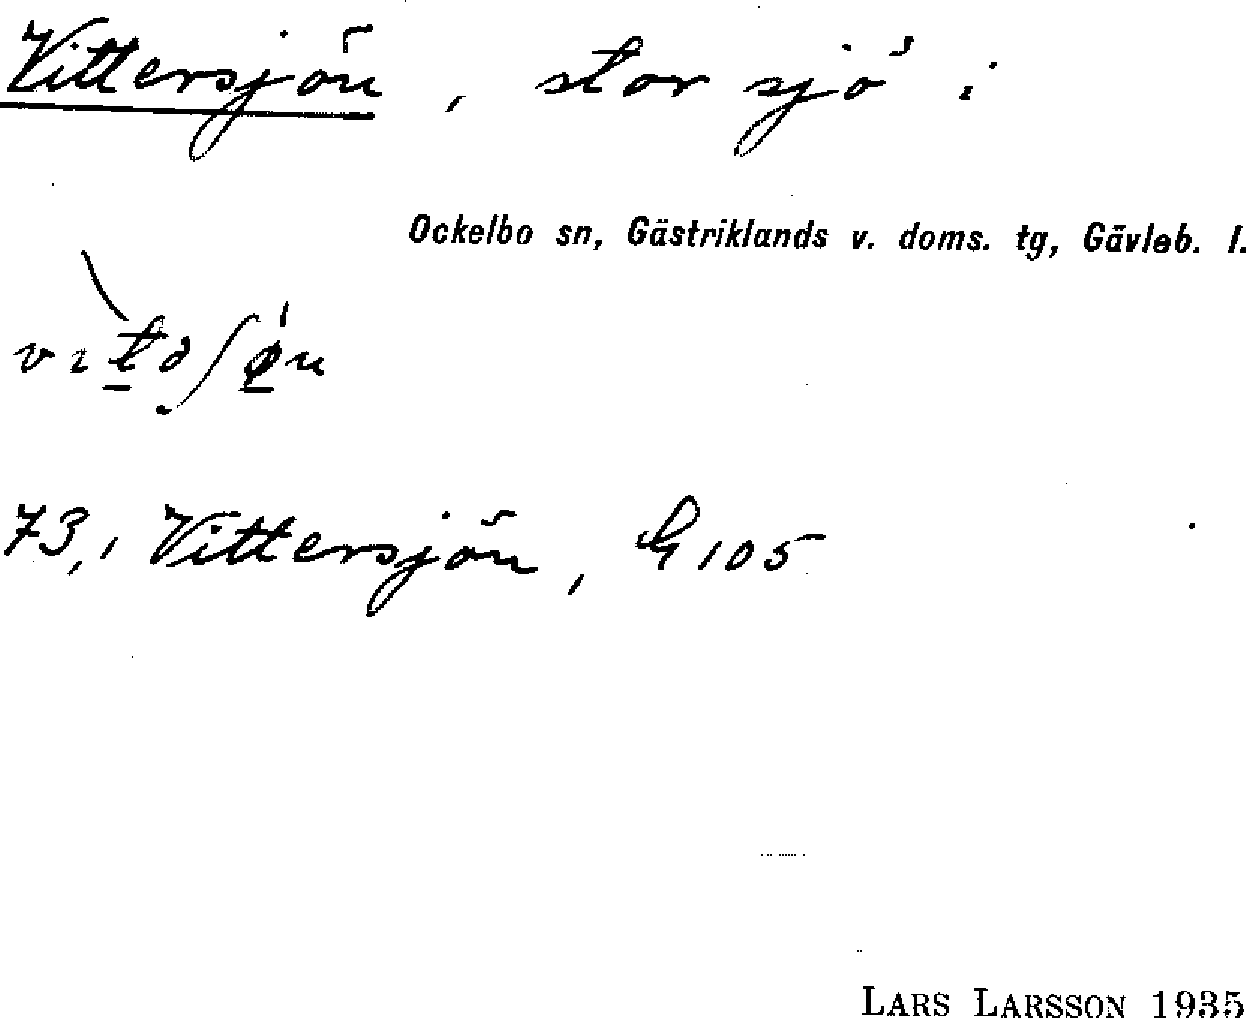 Vittersjön, stor sjö i
Ockelbo sn, Gästriklands v. doms. tg, Gävleb. l.
73, Vittersjön, G 105
LARS LARSSON 1935